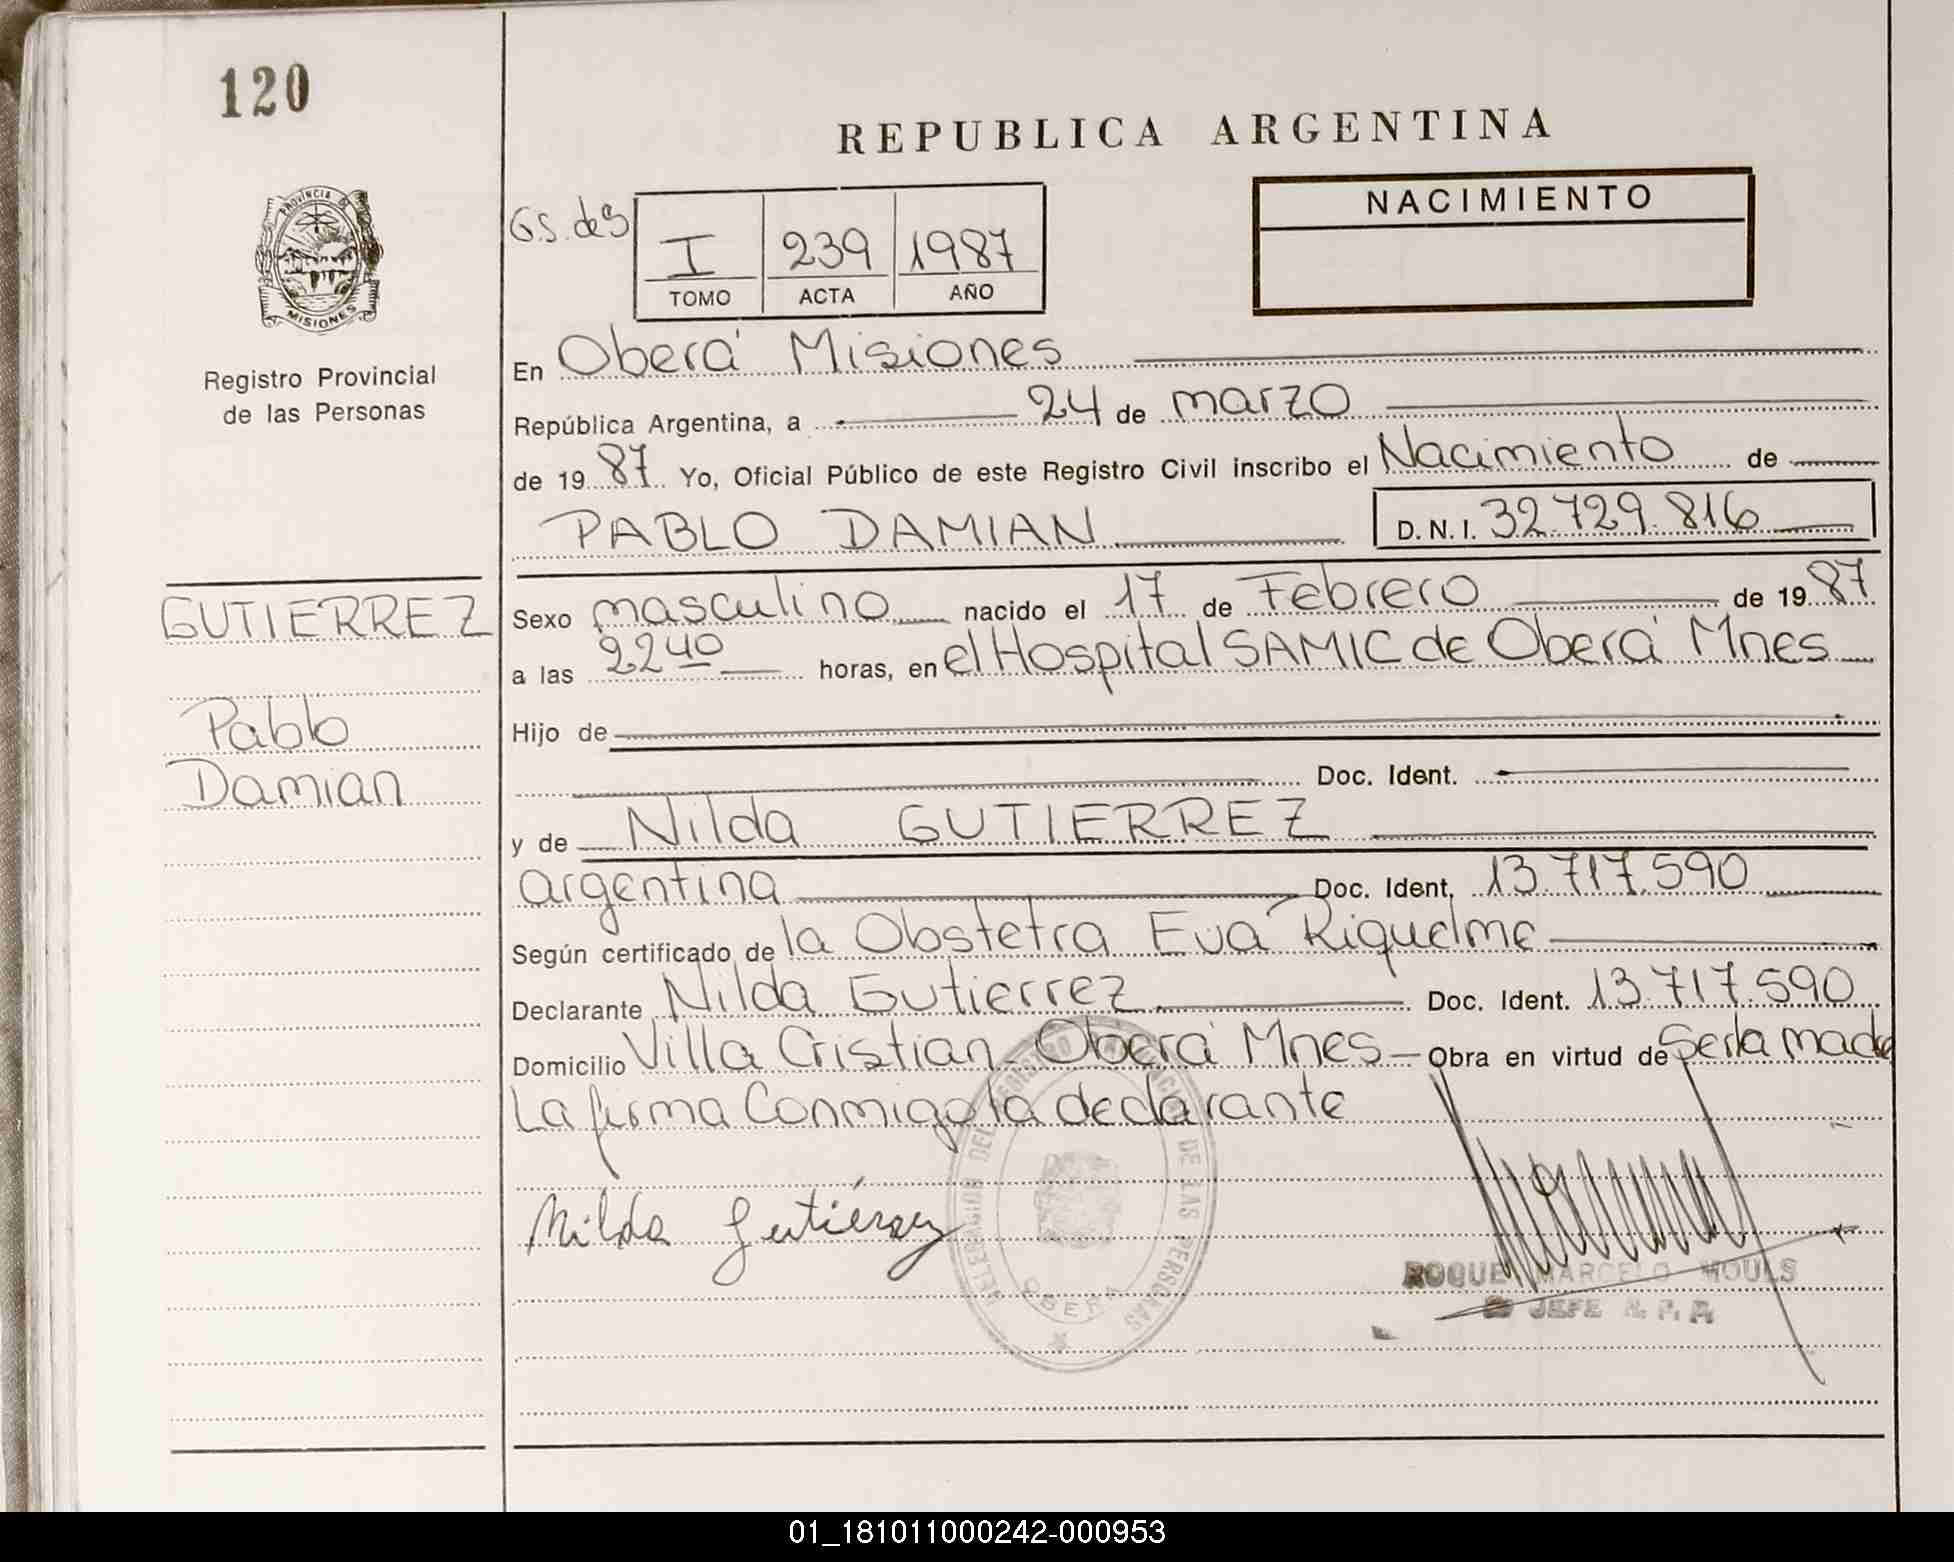 120
REPUBLICA ARGENTINA
PROVINCIA DE
MISIONES
Registro Provincial
de las Personas
G.S. des
I 239 1987
TOMO ACTA AÑO
NACIMIENTO
En Oberá Misiones
República Argentina, a 24 de marzo
de 19 87 Yo, Oficial Público de este Registro Civil inscribo el Nacimiento de
PABLO DAMIAN D.N.I. 32.729.816
GUTIERREZ
Pablo
Damian
Sexo masculino nacido el 17 de Febrero de 19 87
a las 2240 horas, en el Hospital SAMIC de Oberá Mnes
Hijo de
Doc. Ident.
y de Nilda GUTIERREZ
argentina Doc. Ident. 13.717.590
Según certificado de la Obstetra Eva Riquelme
Declarante Nilda Gutierrez Doc. Ident. 13.717.590
Domicilio Villa Cristian - Oberá Mnes - Obra en virtud de Ser la madre
La firma Conmigo la declarante
Nilda Gutiérrez
DELEGACION DEL REGISTRO PROVINCIAL DE LAS PERSONAS
OBERA
ROQUE MARCELO MOULS
JEFE R. P. P.
01_181011000242-000953